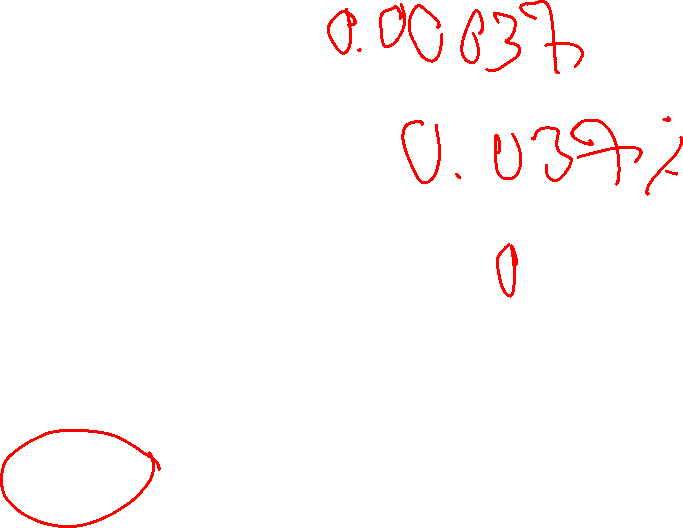 0.00037
0.037%
0